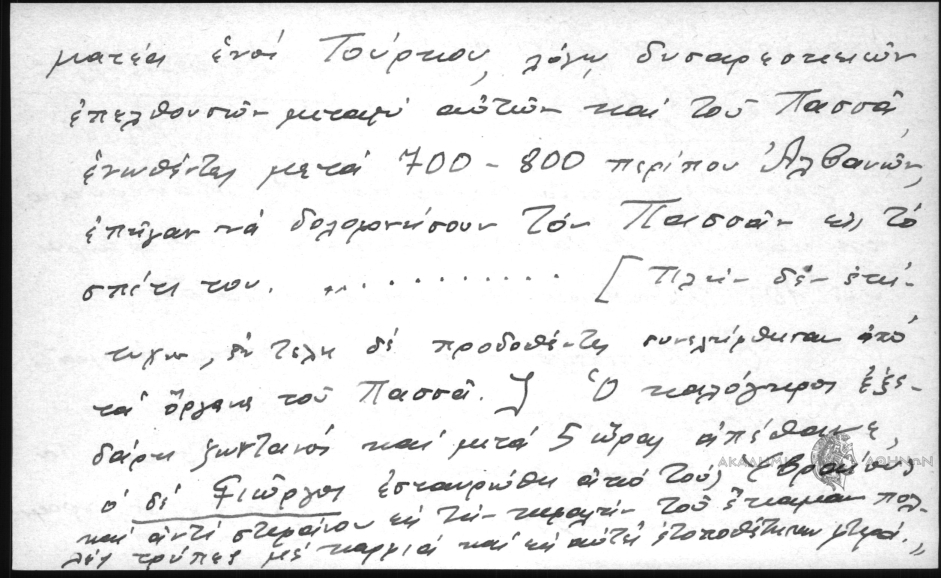 ματέρι ἑνός Τούρκου, λόγῳ δυσαρεσκειῶν
ἐπελθουσῶν μεταξύ αὐτῶν καί τοῦ Πασσᾶ
ἑνωθέντες μετά 700-800 περίπου Ἀλβανῶν,
ἐπῆγαν νά δολοφονήσουν τόν Πασσᾶν εἰς τό
σπίτι του. ........... [Πλήν δέν ἐπέ-
τυχον, ἐν τέλει δέ προδοθέντες συνελήφθησαν ἀπό
τά ὄργανα τοῦ Πασσᾶ.] Ὁ καλόγηρος ἐξε-
δάρη ζωντανός καί μετά 5 ὥρας ἀπέθανε,
ὁ δέ Γιῶργος ἐσταυρώθη ἀπό τούς Ἑβραίους
καί ἀντί στεφάνου εἰς τήν κεφαλήν τοῦ ἔκαμαν πολ-
λές τρύπες μέ καρφιά καί εἰς αὐτές ἐτοποθέτησαν φτερά."
ΑΚΑΔΗΜΙΑ ΑΘΗΝΩΝ